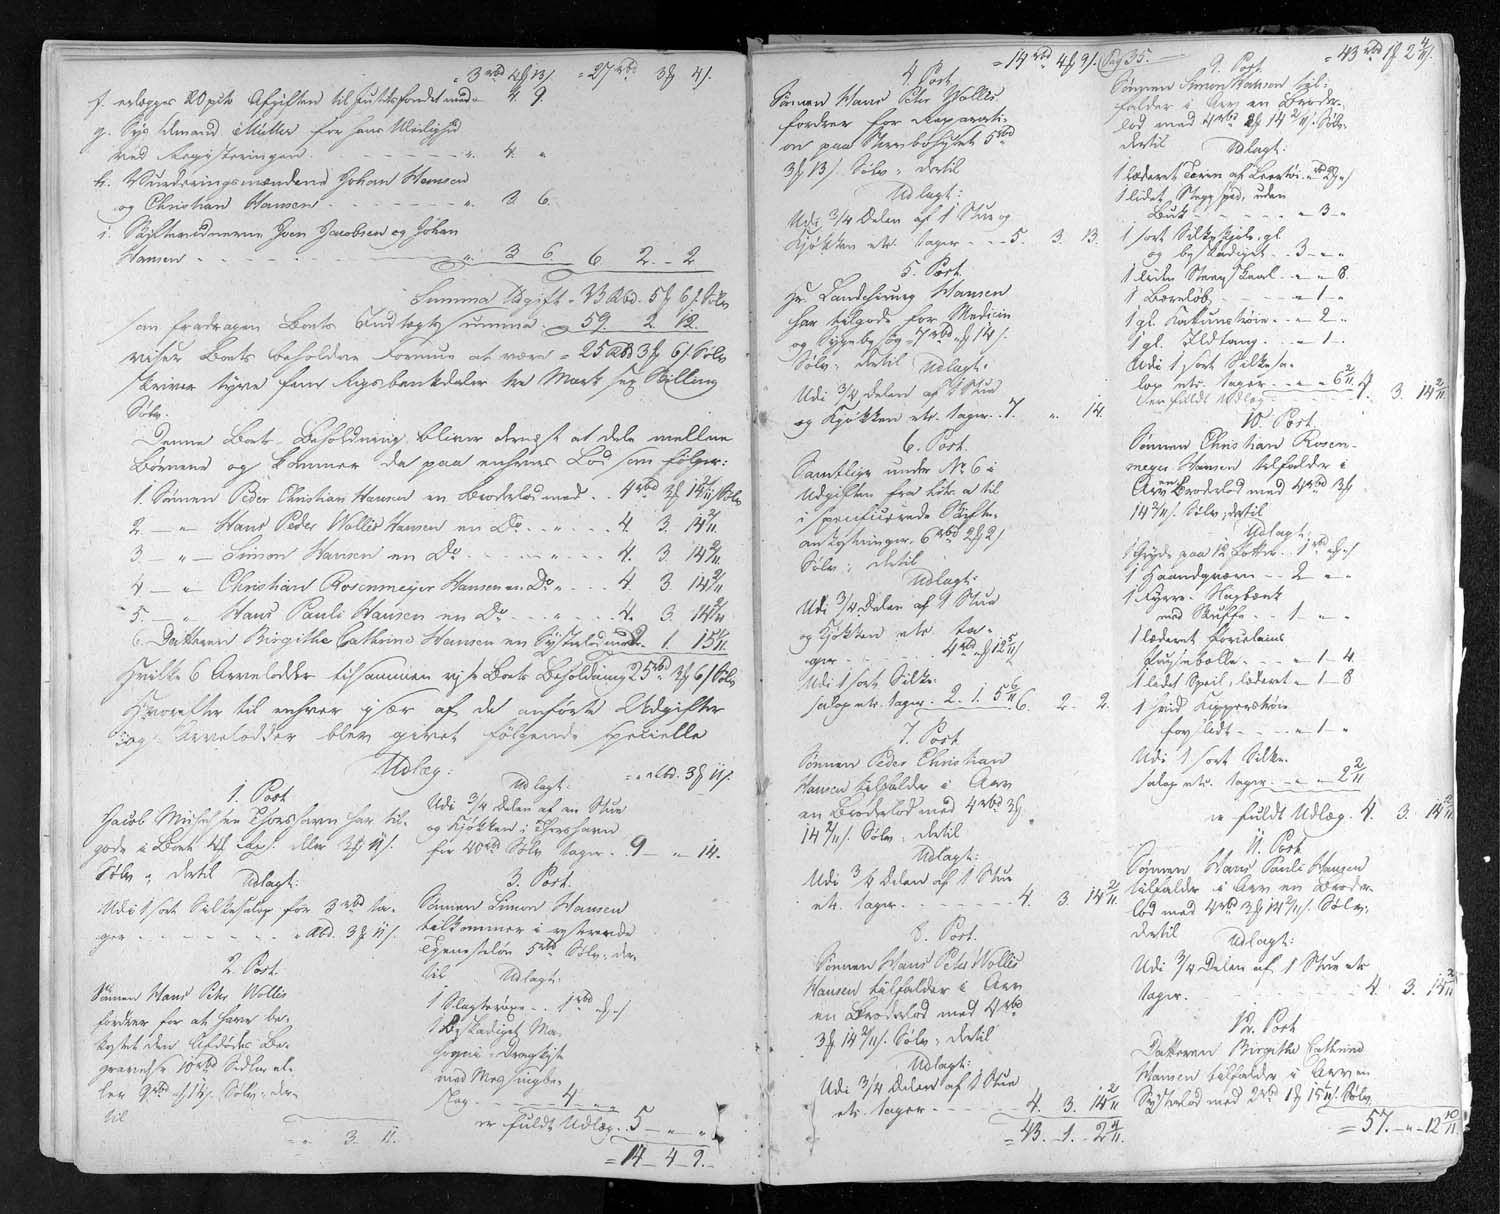 = 3 rbd 4 ß 13 /. = 27 rbd 3 ß 4 /.
f. erlægges 20 pCto Afgiften til Justitsfondet med " 4. 9.
g. Sysselmand Müller for hans Uleilighed
ved Registeringen . - - - - - - ". 4. "
h. Vurderingsmændene Johan Hansen
og Christian Hansen . - - - - - ". 3. 6.
i. Skiftevidnerne Joen Jacobsen og Johan
Hansen - - - - - - - - ". 3 6. 6 2. - 2
Summa Udgift - 33 Rbd. 5 ß 6 /. Sølv
som fradragen Boets Indtægts Summa = 59. 2. 12.
viser Boets beholdne Formue at være = 25 Rbd 3 ß 6 /. Sølv
skriver tyve fem Rigsbankdaler tre Mark sex Skilling
Sølv.
Denne Boets Beholdning bliver dernæst at dele mellem
Børnene og kommer da paa enhvers Lod som følger:
1. Sønnen Peder Christian Hansen en Broderlod med . . 4 rbd 3 ß 14 2/11 /. Sølv
2. - " - Hans Peder Wollis Hansen en Do . " . . . 4. 3. 14 2/11
3. - " - Simon Hansen en Do . - - - " . . . . 4. 3. 14 2/11
4 - " - Christian Rosenmeyer Hansen en Do " . . . 4. 3. 14 2/11
5. - " - Hans Pauli Hansen en Do . . - - " . . . . 4. 3. 14 2/11
6. Datteren Birgithe Cathrine Hansen en Systerlod med 2. 1. 15 1/11
Hvilke 6 Arvelodder tilsammen vise Boets Beholdning 25 rbd 3 ß 6 /. Sølv
Hvorefter til enhver især af de anførte Udgifter
og Arvelodder blev givet følgende specielle
Udlæg:
1. Post
Jacob Michelsen Thorshavn har til-
gode i Boet eller 3 ß 11 /.
Sølv , dertil
Udlagt:
Udi 1 sort Silkesalop for 3 rbd ta-
ger - - - - - - - " Rbd. 3 ß 11 /.
2. Post.
Sønnen Hans Peter Wollis
fordrer for at have be-
kostet den Afdødes Be-
gravelse 10 rbd Sedler el-
ler 9 rbd " ß 14 /. Sølv, der-
til
= ". 3. 11.
= " Rbd. 3 ß 11 /.
Udlagt:
Udi 3/4 Delen af en Stue
og Kjøkken i Thorshavn
for 40 rbd Sølv tager . 9 - " - 14.
3. Post.
Sønnen Simon Hansen
tilkommer i resterende
Tjenesteløn 5 rbd Sølv, der-
til
Udlagt:
1 Slagterøxe . . 1 rbd " ß " /.
1 Beskadiget Ma-
hogni - Dragkiste
med Messingbe-
slag - - - - 4 " "
er fuldt Udlæg . 5 - " - "
= 14 - 4 - 9. -
= 14 rbd. 4 ß 9 /. Pag 35.
4. Post
Sønnen Hans Peter Wollis
fordrer for Reparati-
on paa Sterboehuset 5 rbd
3 ß 13 /. Sølv , dertil
Udlagt:
Udi 3/4 Delen af 1 Stue og
Kjøkken etc. tager . - - 5. 3. 13.
5. Post.
Hr. Landchirurg Hansen
har tilgode for Medicin
og Sygebesøg 7 rbd " ß 14 /.
Sølv , dertil Udlagt:
Udi 3/4 Delen af 1 Stue
og Kjøkken etc. tager . . 7. ". 14.
6. Post.
Samtlige under No 6 i
Udgiften fra Litr. a til
i specificerede Skifte-
omkostninger, 6 rbd 2 ß 2 /
Sølv , dertil
Udlagt:
Udi 3/4 Delen af 1 Stue
og Kjøkken etc. ta-
ger - - - - - 4 rbd " ß 12 5/11 /.
Udi 1 sort Silke-
salop etc. tager . 2. 1. 5 6/11 6. 2. 2.
7. Post
Sønnen Peder Christian
Hansen tilfalder i Arv
en Broderlod med 4 rbd 3 ß
14 2/11 /. Sølv , dertil
Udlagt:
Udi 3/4 Delen af 1 Stue
etc. tager . - - - - - - 4. 3. 14 2/11.
8. Post.
Sønnen Hans Peter Wollis
Hansen tilfalder i Arv
en Broderlod med 4 rbd
3 ß 14 2/11 /. Sølv , dertil
Udlagt:
Udi 3/4 Delen af 1 Stue
etc. tager - - - - - - 4. 3. 14 2/11
= 43. 1. 2 4/11.
= 43 rbd 1 ß 2 4/11 /.
9. Post
Sønnen Simon Hansen til-
falder i Arv en Broder-
lod med 4 rbd 3 ß 14 2/11 /. Sølv,
dertil Udlagt:
1 læderet Terin af Leertøi . " rbd 2 ß " /
1 lidet Steegspid, uden
Buk - - - - - - " - 3 - "
1 sort Silkekjole, gl.
og beskadiget . - 3 - " - "
1 liden Steegskaal - " - " 8.
1 Børreløb - - - - - " - 1 - "
1 gl. Kattunstrøie - - " - 2 - "
1 gl. Ildtang . - - " - 1 -
Udi 1 sort Silkesa-
lop etc. tager - - " - " - 6 2/11
er fuldt Udlæg - - - - 4. 3. 14 2/11
10. Post.
Sønnen Christian Rosen-
meyer Hansen tilfalder i
Arv en Broderlod med 4 rbd 3 ß
14 2/11 /. Sølv , dertil
Udlagt:
1 Gryde paa 12 Potter . . 1 rbd " ß " /
1 Haandqværn - - 2 - " - "
1 Fyrre - Slagbænk
med Skuffe - - - 1 - " - "
1 læderet Porcelains
Punschebolle - - - " - 1 - 4.
1 lidet Speil, læderet " - 1 - 8
1 hvid Kipperstrøie
forslidt - - - - " - 1 - "
Udi 1 sort Silke-
salop etc. tager - " - " - 2 2/11
er fuldt Udlæg . 4. 3. 14 2/11
11. Post.
Sønnen Hans Pauli Hansen
tilfalder i Arv en Broder-
lod med 4 rbd 3 ß 14 2/11 /. Sølv,
dertil
Udlagt:
Udi 3/4 Delen af 1 Stue etc.
tager. - - - - - - - - 4. 3. 14 2/11
12. Post
Datteren Birgithe Cathrine
Hansen tilfalder i Arv en
Systerlod med 2 rbd 1 ß 15 1/11 /. Sølv
= 57. - " - 12 10/11